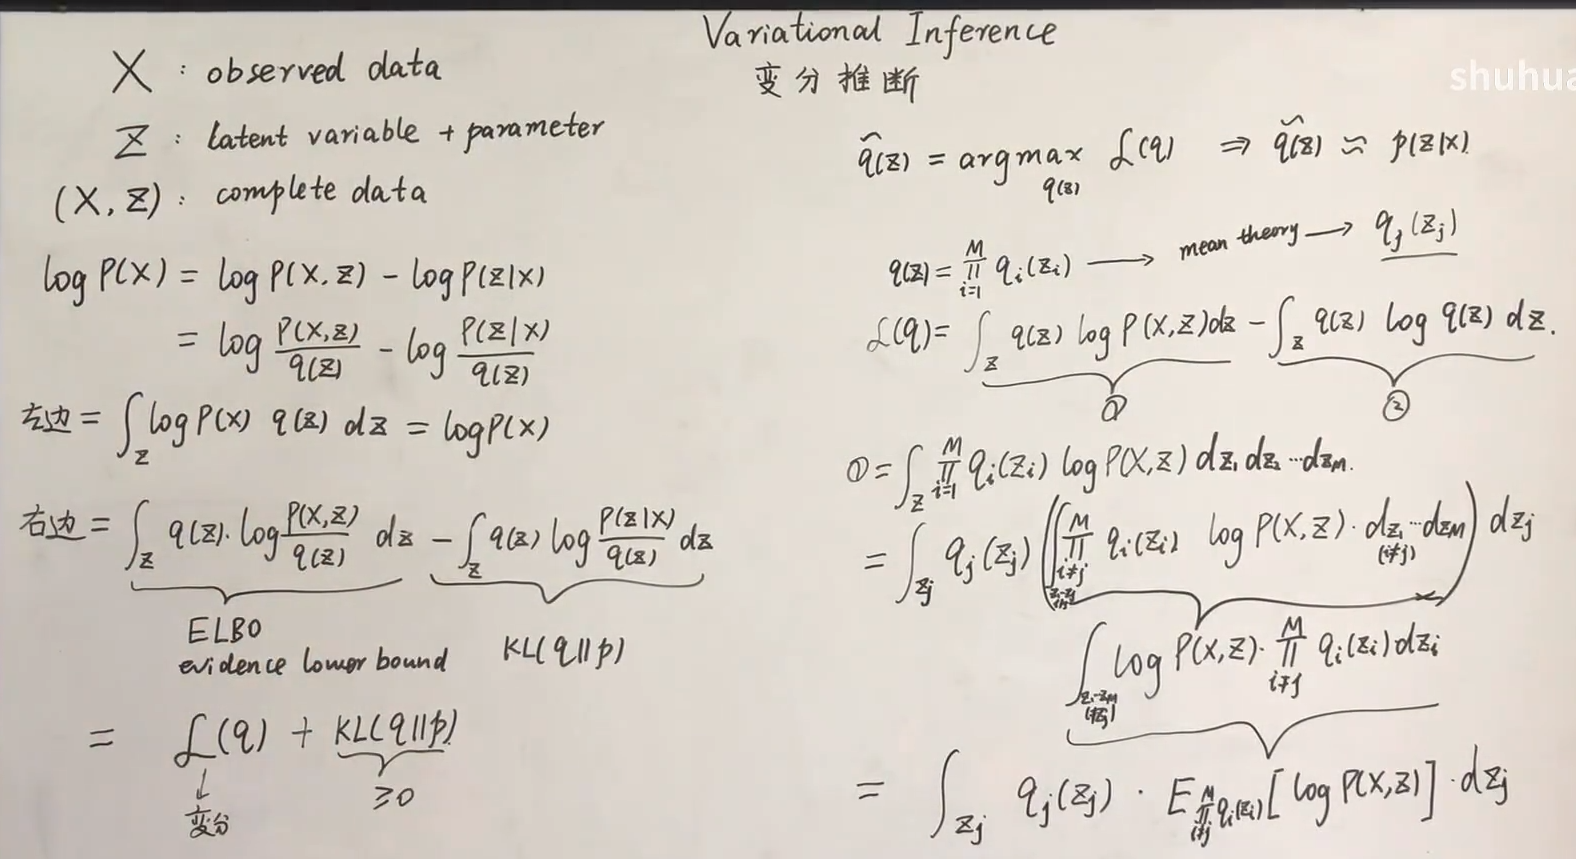 Variational Inference
变分推断
shuhua
X : observed data
Z : latent variable + parameter
(X, Z) : complete data
log P(X) = log P(X, Z) - log P(Z|X)
= log P(X,Z)/q(Z) - log P(Z|X)/q(Z)
左边 = ∫_Z log P(X) q(Z) dZ = log P(X)
右边 = ∫_Z q(Z)· log P(X,Z)/q(Z) dZ - ∫_Z q(Z) log P(Z|X)/q(Z) dZ
ELBO
evidence lower bound
KL(q||p)
= ℒ(q) + KL(q||p)
↓
变分
≥0
q̂(Z) = argmax_{q(Z)} ℒ(q) ⇒ q̂(Z) ≈ p(Z|X)
q(Z) = ∏_{i=1}^{M} q_i(Z_i) ⟶ mean theory ⟶ q_j(Z_j)
ℒ(q) = ∫_Z q(Z) log P(X,Z) dZ - ∫_Z q(Z) log q(Z) dZ.
① ②
① = ∫_Z ∏_{i=1}^{M} q_i(Z_i) log P(X,Z) dZ_1 dZ_2 ··· dZ_M.
= ∫_{Z_j} q_j(Z_j) (∫ ∏_{i≠j}^{M} q_i(Z_i) log P(X,Z) · dZ_1 ··· dZ_M (i≠j)) dZ_j
∫_{Z_1-Z_M} log P(X,Z) · ∏_{i≠j}^{M} q_i(Z_i) dZ_i
= ∫_{Z_j} q_j(Z_j) · E_{∏_{i≠j}^{M} q_i(Z_i)} [log P(X,Z)] · dZ_j